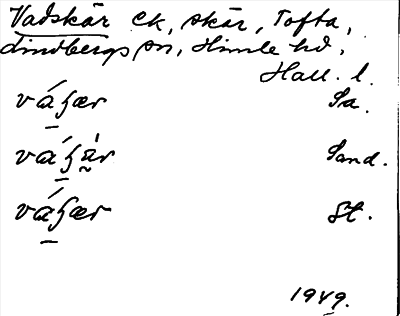 Vadskär ek, skär, Tofta,
Lindbergs sn, Himle hd,
Hall. l.
vá̱ʒær Sa.
vá̱ʒà̰r Sand.
vá̱ʒær St.
1949.